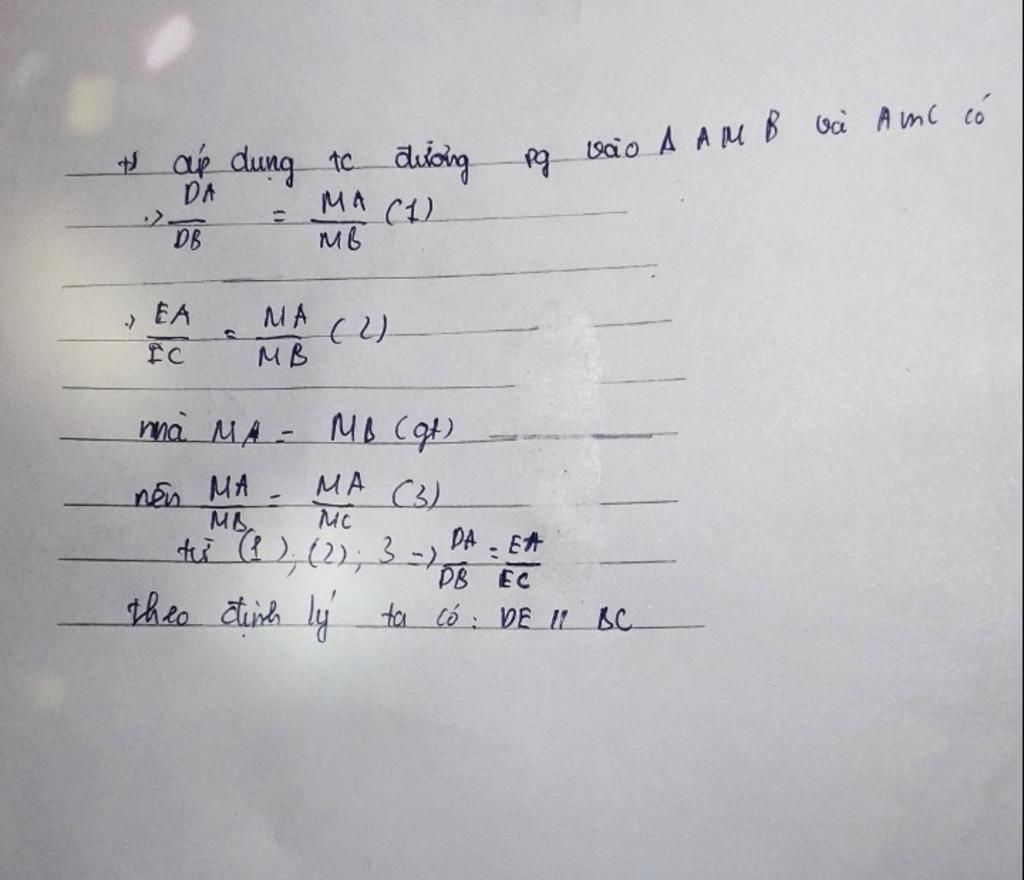 +) áp dụng tc đường pg vào Δ AMB và AMC có
·> DA/DB = MA/MB (1)
·> EA/EC = MA/MB (2)
mà MA = MB (gt)
nên MA/MB = MA/MC (3)
từ (1), (2), 3 => DA/DB = EA/EC
theo định lý ta có: DE // BC